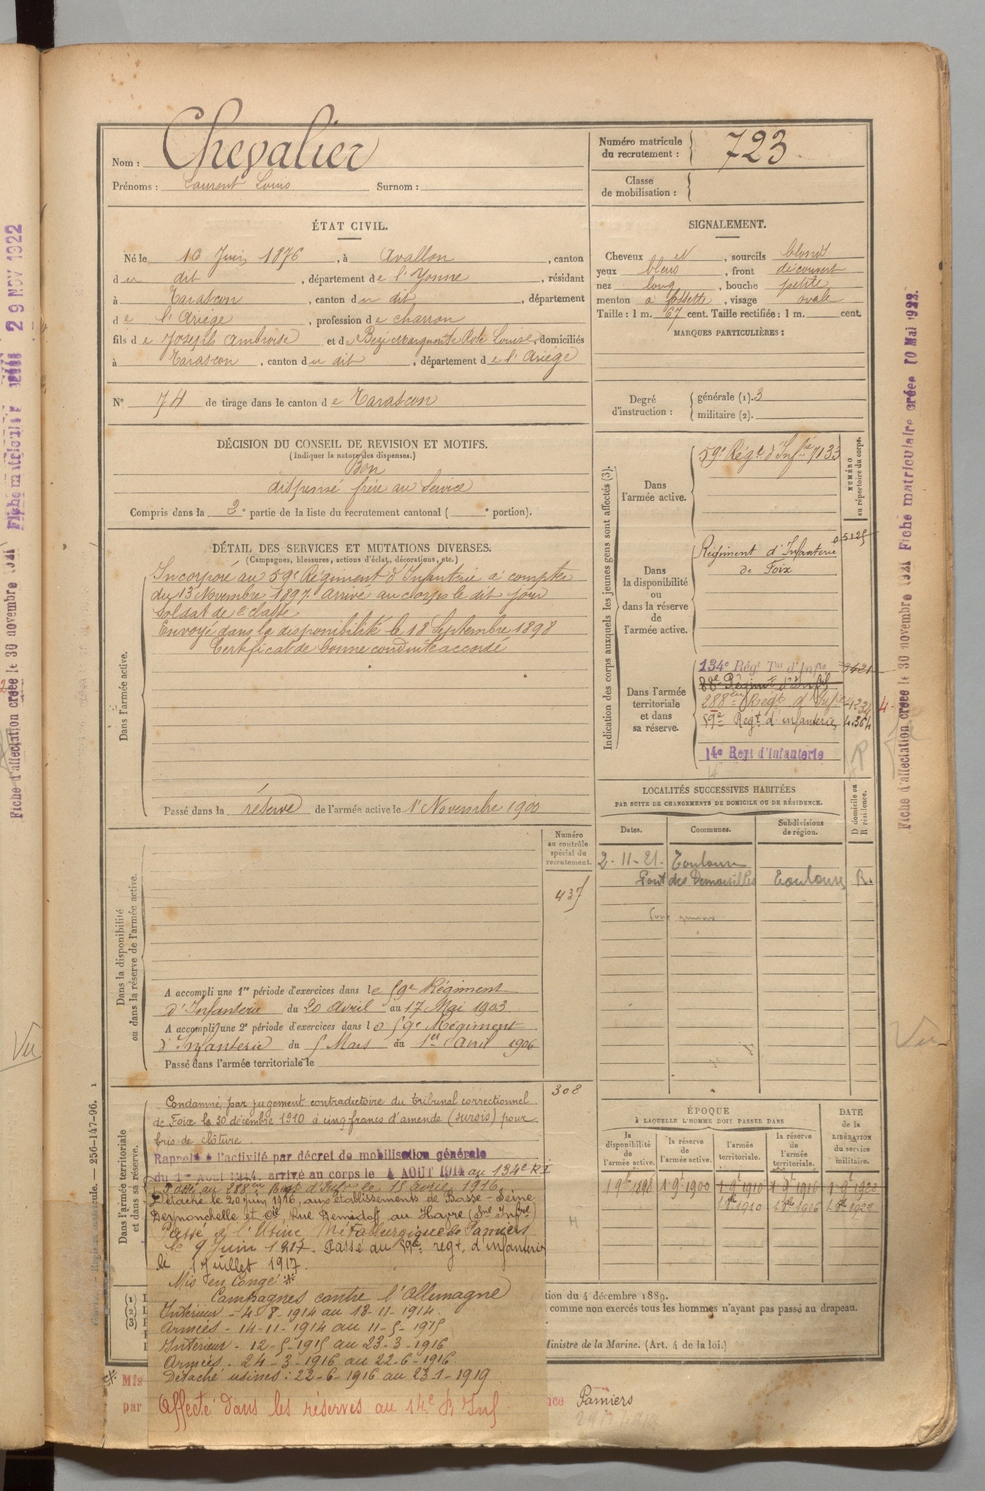 Nom : Chevalier
Prénoms : Laurent Louis Surnom :
Numéro matricule du recrutement : 723
Classe de mobilisation :
ÉTAT CIVIL.
Né le 10 Juin 1876, à Avallon, canton
d u dit, département de l'Yonne, résidant
à Tarascon, canton d u dit, département
d e l'Ariège, profession de charron
fils d e Joseph Ambroise et de Marguerite Louise, domiciliés
à Tarascon, canton d u dit, département de l'Ariège
N° 74 de tirage dans le canton d e Tarascon
SIGNALEMENT.
Cheveux et, sourcils blond
yeux bleus, front découvert
nez long, bouche petite
menton à fossette, visage ovale
Taille : 1 m. 67 cent. Taille rectifiée : 1 m. cent.
MARQUES PARTICULIÈRES :
Degré d'instruction : générale (1). 3
militaire (2).
DÉCISION DU CONSEIL DE REVISION ET MOTIFS.
(Indiquer la nature des dispenses.)
Bon
dispensé frère au service
Compris dans la 2e partie de la liste du recrutement cantonal ( e portion).
DÉTAIL DES SERVICES ET MUTATIONS DIVERSES.
(Campagnes, blessures, actions d'éclat, décorations, etc.)
Dans l'armée active.
Incorporé au 59e Régiment d'Infanterie à compter
du 13 Novembre 1897. Arrivé au corps le dit jour
Soldat de 2e classe.
Envoyé dans la disponibilité le 18 Septembre 1898
Certificat de bonne conduite accordé
Passé dans la réserve de l'armée active le 1er Novembre 1900
Indication des corps auxquels les jeunes gens sont affectés (3).
NUMÉRO au répertoire du corps.
Dans l'armée active.
59e Régt d'Infie 7133
Dans la disponibilité ou dans la réserve de l'armée active.
Régiment d'Infanterie
de Foix
Dans l'armée territoriale et dans sa réserve.
134e Rég Ter d'Infie
88e Régiment d'Inf
288eme Régt d'Infie
59e Regt d'infanterie
14e Regt d'Infanterie
LOCALITÉS SUCCESSIVES HABITÉES
PAR SUITE DE CHANGEMENTS DE DOMICILE OU DE RÉSIDENCE.
D domicile ou R résidence.
Dates. Communes. Subdivisions de région.
2-11-21 Toulouse
Pont des Demoiselles Toulouse R.
Numéro au contrôle spécial du recrutement.
437
Dans la disponibilité ou dans la réserve de l'armée active.
A accompli une 1re période d'exercices dans le 59e Régiment
d'Infanterie du 20 Avril au 17 Mai 1903
A accompli une 2e période d'exercices dans le 59e Régiment
d'Infanterie du 5 Mars au 1er Avril 1906
Passé dans l'armée territoriale le
308
Dans l'armée territoriale et dans sa réserve.
Condamné par jugement contradictoire du tribunal correctionnel
de Foix le 30 décembre 1910 à cinq francs d'amende (sursis) pour
bris de clôture
Rappelé à l'activité par décret de mobilisation générale
du 1er Août 1914. arrivé au corps le 4 AOUT 1914 au 134e RI
Passé au 288eme Regt d'Infie le 15 avril 1916
Détaché le 20 juin 1916, aux établissements de Basse-Seine
et Cie, Rue Demidoff au Havre (Sne Infre)
Passé à l'Usine Métallurgique de Pamiers
le 9 Juin 1917. Passé au 59e regt d'infanterie
le 1 juillet 1917.
Mis en congé
Campagnes contre l'Allemagne
Intérieur - 4-8-1914 au 13-11-1914.
Armées - 14-11-1914 au 11-5-1915
Intérieur - 12-5-1915 au 23-3-1916
Armées - 24-3-1916 au 22-6-1916
Détaché usines : 22-6-1916 au 23-1-1919
Affecté dans les réserves au 14e R Inf
ÉPOQUE
À LAQUELLE L'HOMME DOIT PASSER DANS
la disponibilité de l'armée active. la réserve de l'armée active. l'armée territoriale. la réserve de l'armée territoriale.
DATE de la LIBÉRATION du service militaire.
1 9bre 1898 1 9 1900 1 9 1910 1 9 1916 1 9 1922
tion du 4 décembre 1889.
comme non exercés tous les hommes n'ayant pas passé au drapeau.
Ministre de la Marine. (Art. 4 de la loi.)
Mis
par
nce Pamiers
256-147-96.
Vu
Vu
Fiche matricule 29 NOV 1922
Fiche d'affectation créée le 30 novembre 1921
Fiche d'affectation créée le 30 novembre 1921 Fiche matriculaire créée 10 Mai 1922.